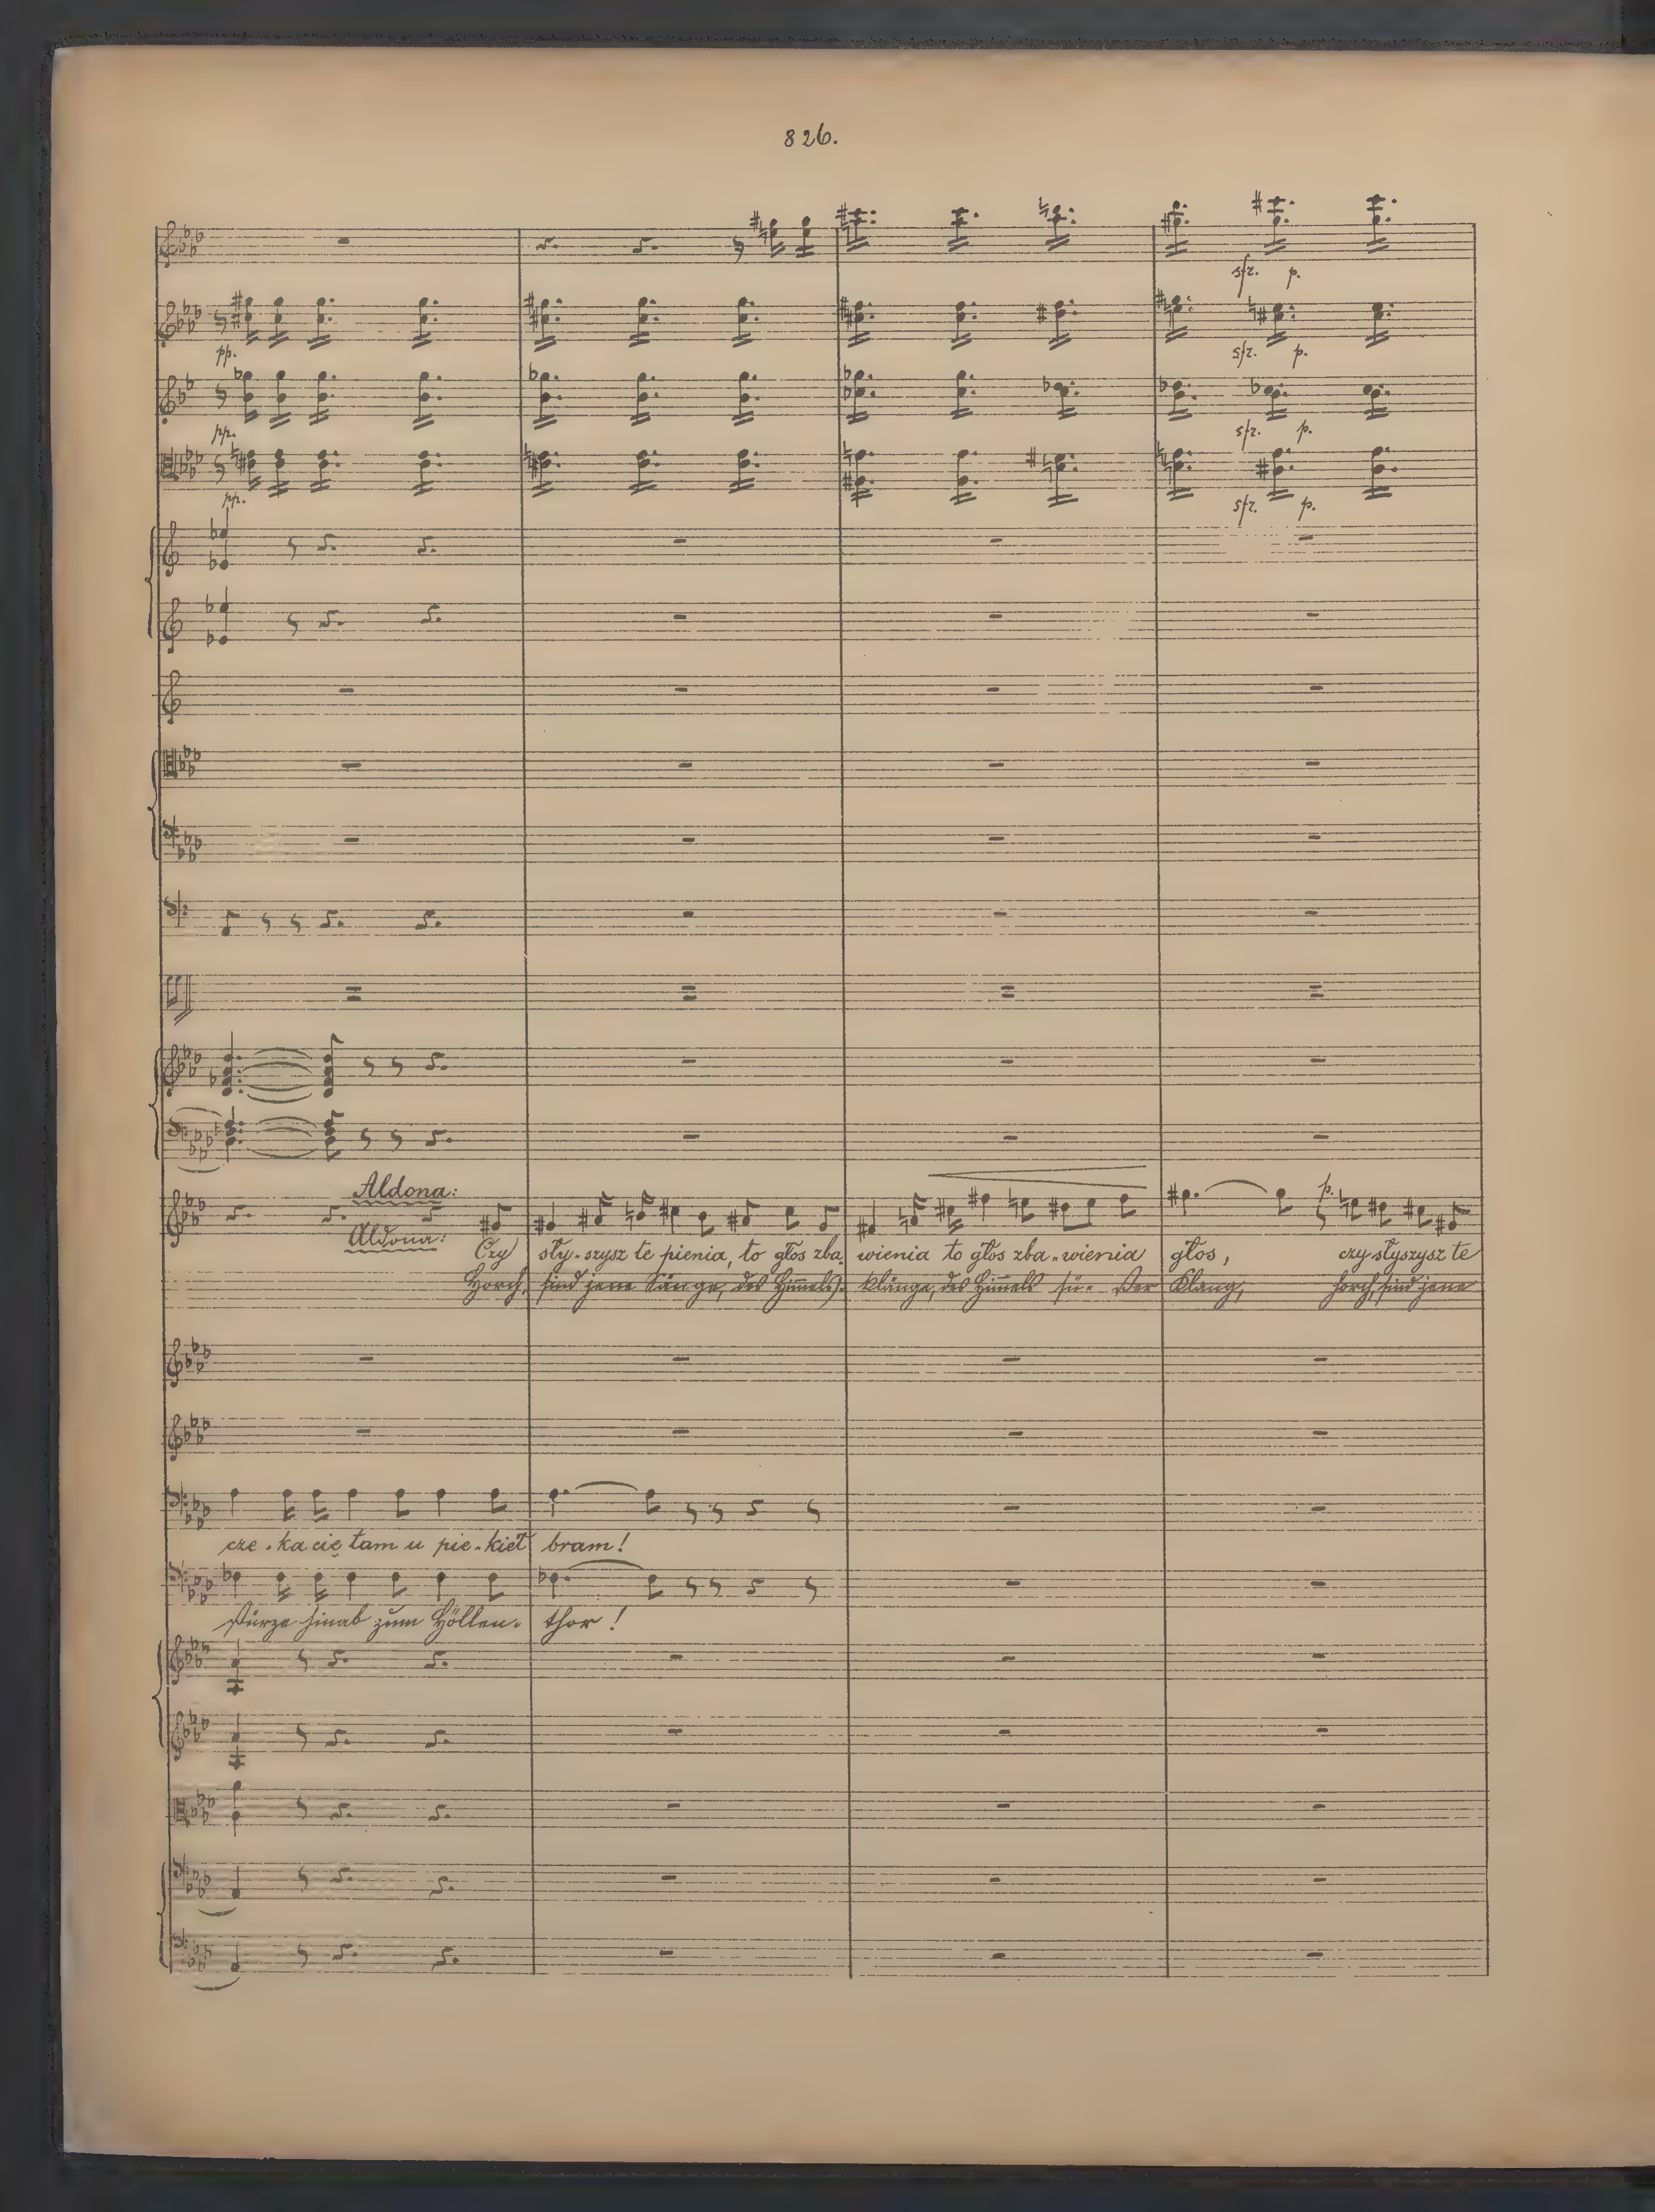 826.
sfz. p.
pp. sfz. p.
pp. sfz. p.
pp. sfz. p.
Aldona:
p.
Aldona:
Czy sły-szysz te pienia, to głos zba-wienia to głos zba-wienia głos, czy słyszysz te
Horch, sind jene Sänge, des Him̅els Klänge, des Him̅els sü-sser Klang, horch, sind jene
cze-ka cię tam u pie-kieł bram!
Stürze hinab zum Höllen-thor!